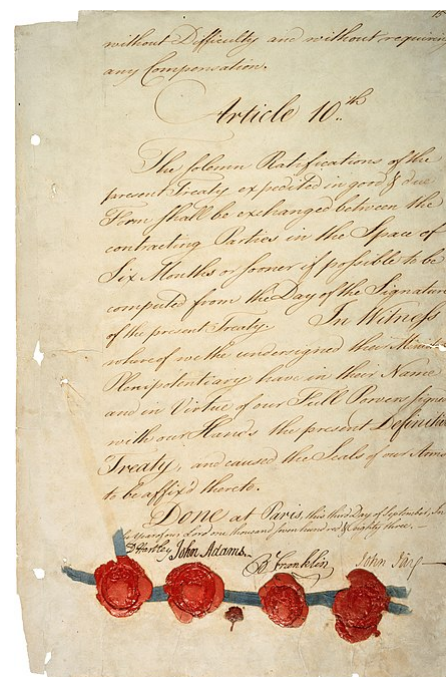 without Difficulty and without requirin
any Compensation.
Article 10.th
The solemn Ratifications of the
present Treaty expedited in good & due
Form shall be exchanged between the
contracting Parties in the Space of
Six Months or sooner if possible to be
computed from the Day of the Signature
of the present Treaty. In Witness
whereof we the undersigned their Minis
Plenipotentiary have in their Name
and in Virtue of our Full Powers signed
with our Hands the present Definitiv
Treaty, and caused the Seals of our Arms
to be affix'd thereto.
Done at Paris, this third Day of September, In
Year of our Lord one thousand seven hundred & eighty three.—
D Hartley John Adams. B Franklin John Jay—